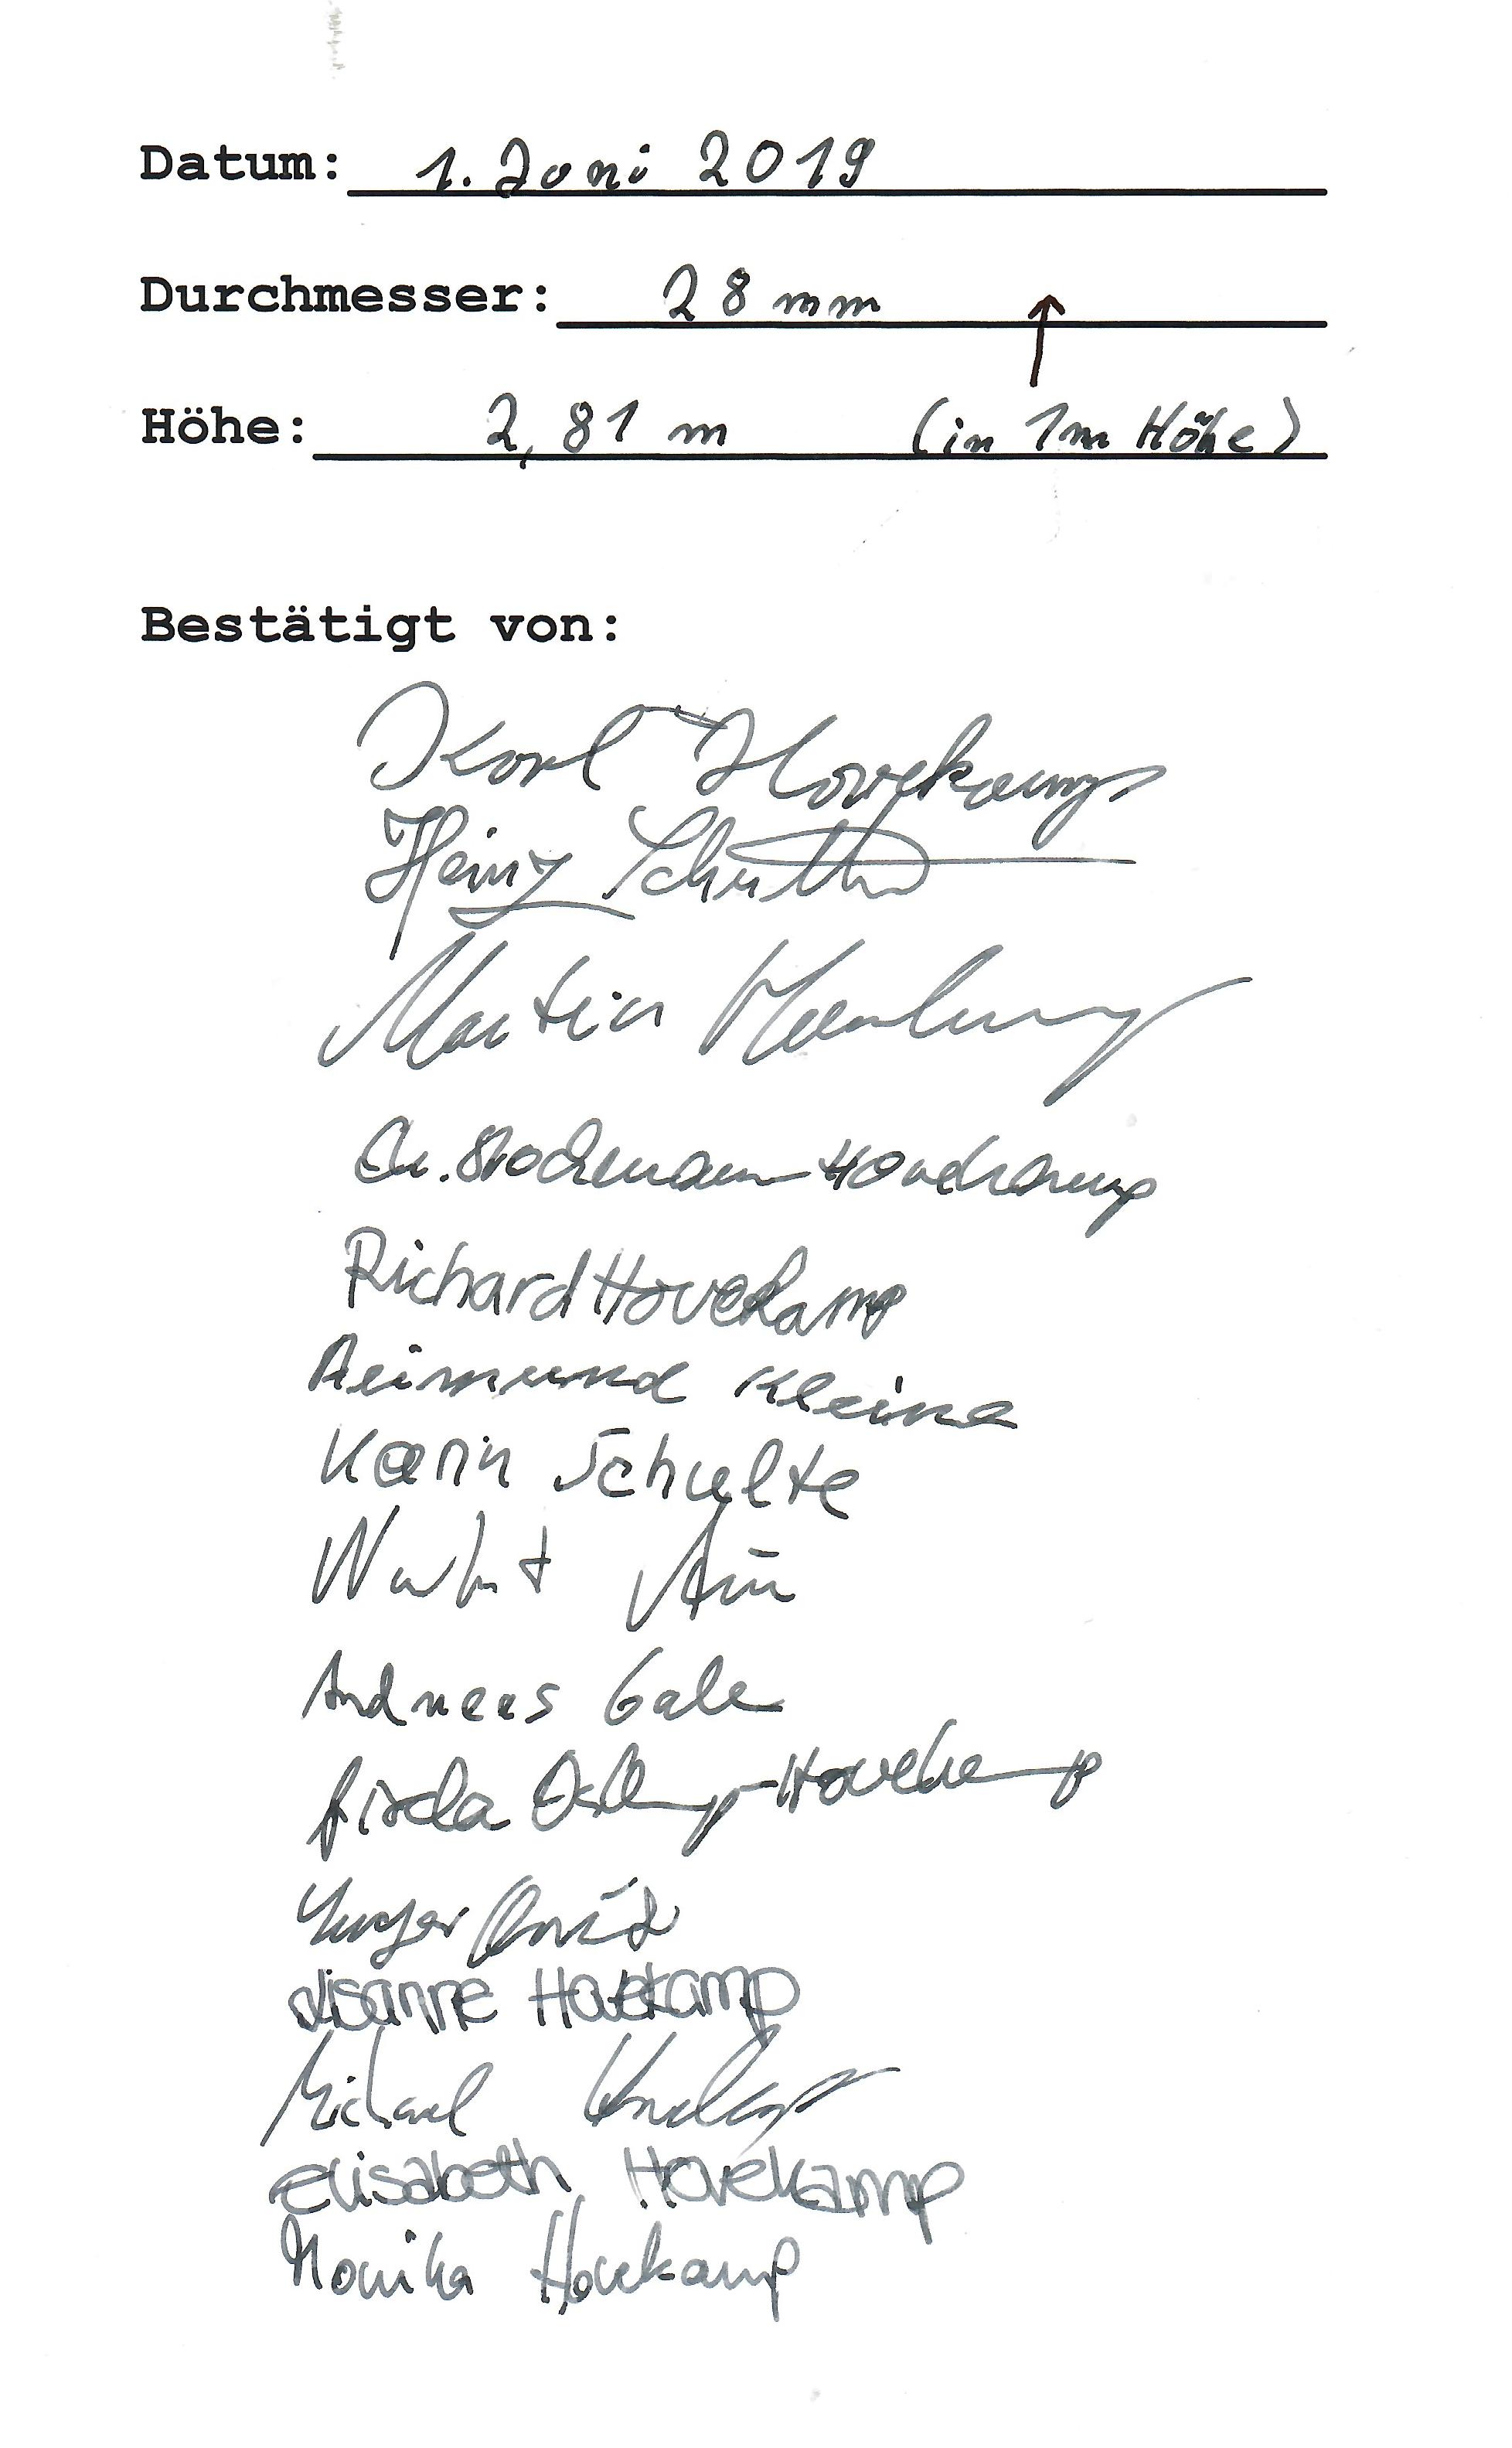 Datum: 1. Juni 2019
Durchmesser: 28 mm ↑
Höhe: 2,81 m (in 1m Höhe)
Bestätigt von:
Karl Hovekamp
Heinz Schulte
Martin
Stockmann-Hovekamp
Richard Hovekamp
Reimund Kleine
Karin Schulte
Andreas
Gisela Hovekamp
Lisanne Hovekamp
Michael
Elisabeth Hovekamp
Monika Hovekamp